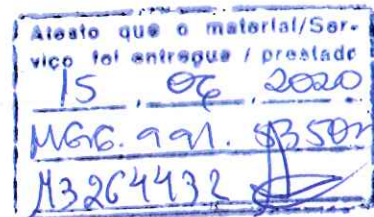 Atesto que o material/Ser-
viço foi entregue / prestado
15 , 06 , 2020
MG16. 991.
M3264432